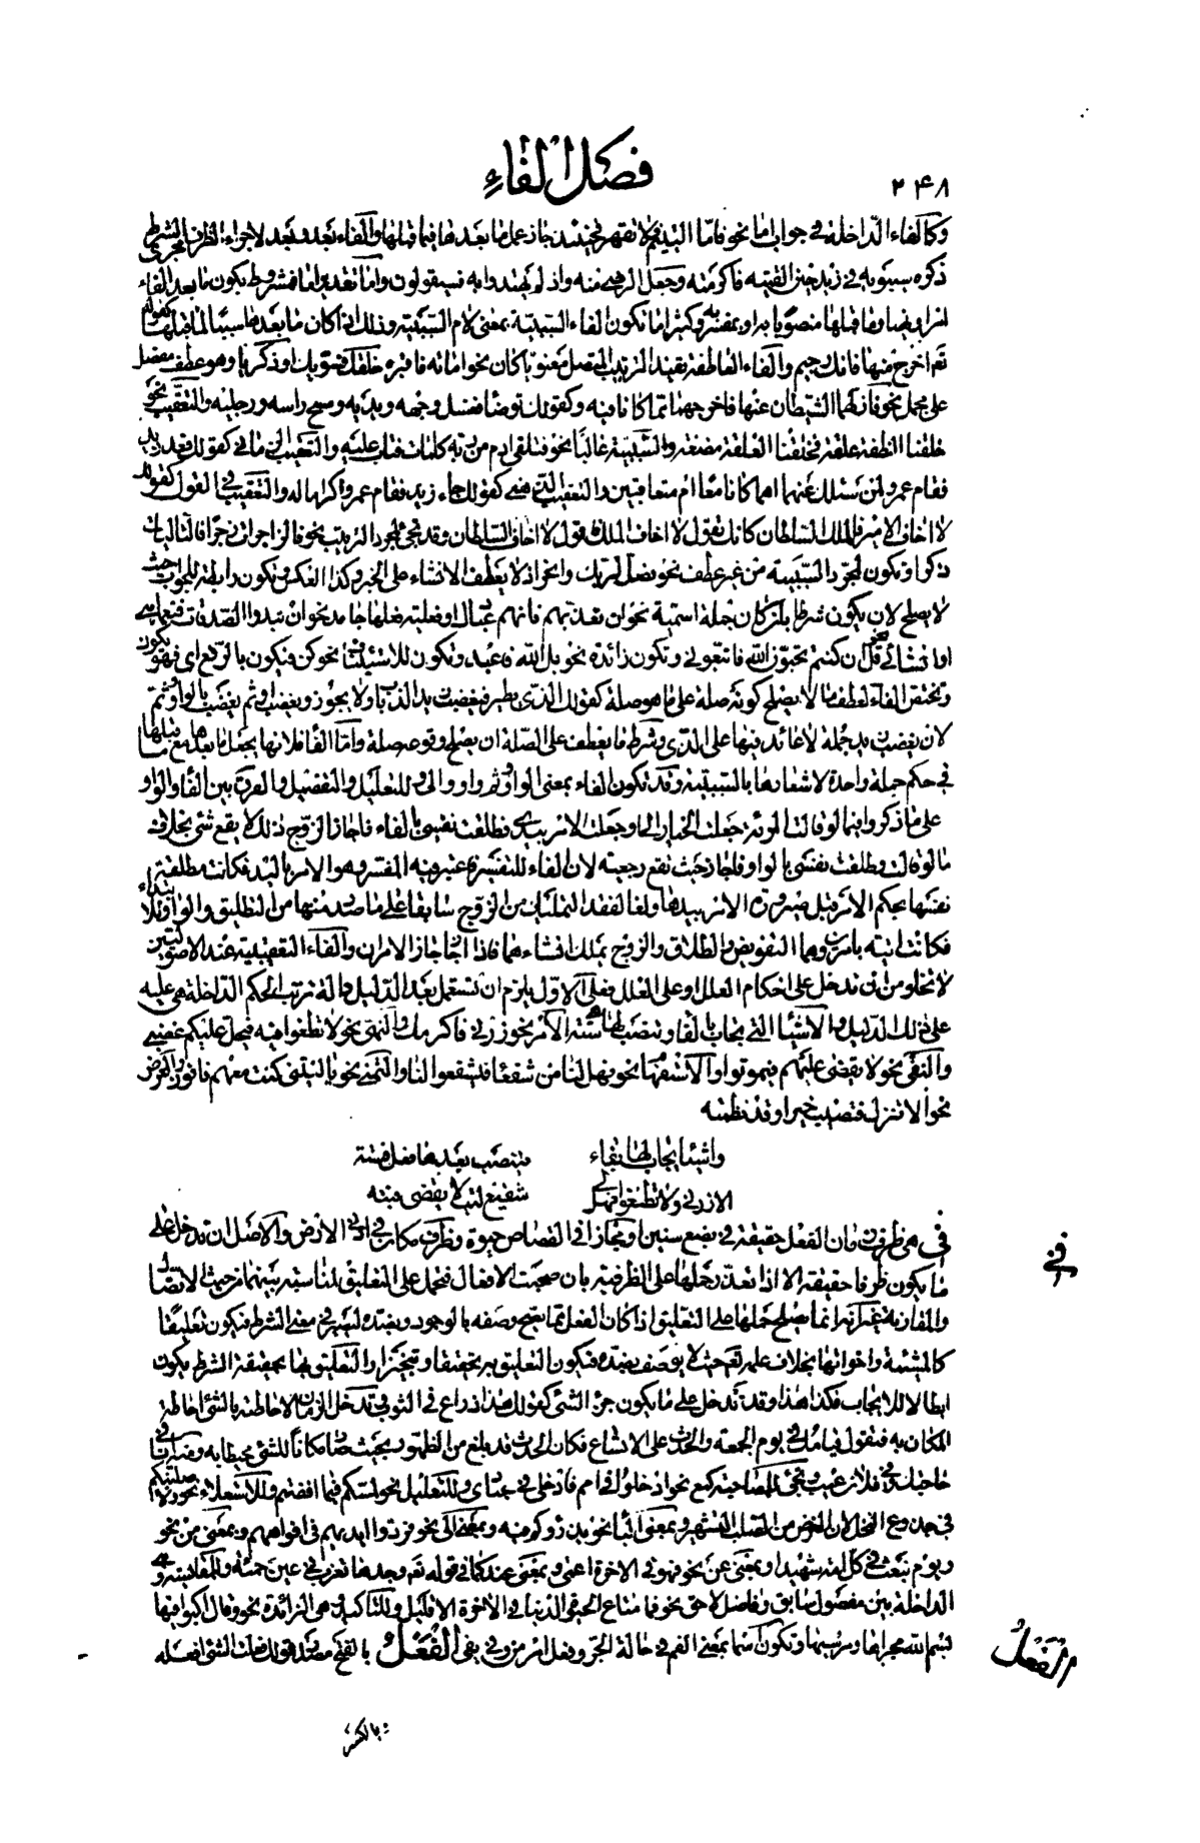 فصل الفاء
٢٤٨
وكالفاء الداخلة في جواب اما نحو فاما اليتيم فلا تقهر فحينئذ جاز عمل ما بعدها فيما قبلها والفاء بعد وبعد لاجراء الظرف مجرى الشرط
ذكره سيبويه في زيد حين لقيته فاكرمته وجعل الرضي منه واذ لم يهتدوا به فسيقولون واما تقدير اما فمشروط بكون ما بعد الفاء
امرا او نهيا وما قبلها منصوبا به او بمفسر به وكثيرا ما تكون الفاء السببية بمعنى لام السببية وذلك اذا كان ما بعدها سببا لما قبلها كقوله
تعم اخرج منها فانك رجيم والفاء العاطفة تفيد الترتيب المتصل معنويا كان نحو اماته فاقبره خلقك فسويك او ذكريا وهو عطف مفصل
على مجمل نحو فازلهما الشيطان عنها فاخرجهما مما كانا فيه وكقولك توضأ فغسل وجهه ويديه ومسح راسه ورجليه والتعقيب نحو
خلقنا النطفة علقة فخلقنا العلقة مضغة والسببية غالبا نحو فتلقى ادم من ربه كلمات فتاب عليه والتعقيب الزماني كقولك قعد زيد
فقام عمرو لمن سئلك عنهما اهما كانا معا ام متعاقبين والتعقيب الذهني كقولك جاء زيد فقام عمرو اكراما له والتعقيب في القول كقولك
لا اخاف الامير فالملك فالسلطان كانك تقول لا اخاف الملك فتقول لا اخاف السلطان وقد تجئ لمجرد الترتيب نحو فالزاجرات زجرا فالتاليات
ذكرا وتكون لمجرد السببية من غير عطف نحو فصل لربك وانحر اذ لا يعطف الانشاء على الخبر وكذا العكس وتكون رابطة للجواب حيث
لا يصلح لان يكون شرطا بان كان جملة اسمية نحو ان تعذبهم فانهم عبادك او فعلية فعلها جامد نحو ان تبدوا الصدقات فنعما هي
او انشائي قل ان كنتم تحبون الله فاتبعوني وتكون زائدة نحو بل الله فاعبد وتكون للاستيناف نحو كن فيكون بالرفع اي فهو يكون
وتختص الفاء لعطف ما لا يصلح كونه صلة على ما هو صلة كقولك الذي يطير فيغضب زيد الذباب ولا يجوز ويغضب او ثم يغضب بالواو وثم
لان يغضب زيد جملة لا عائد فيها على الذي وشرط ما يعطف على الصلة ان يصلح وقوعه صلة واما الفاء فلانها يجعل ما بعدها مع ما قبلها
في حكم جملة واحدة لاشعارها بالسببية وقد تكون الفاء بمعنى الواو وثم واو والى وللتعليل والتفصيل والفرق بين الفاء والواو
على ما ذكروا فيما لو قالت لمؤنه جعلت الخيار الي او جعلت الامر بيدي فطلقت نفسي بالفاء فاجاز الزوج ذلك لا يقع شئ بخلاف
ما لو قالت وطلقت نفسي بالواو فاجاز حيث تقع رجعية لان الفاء للتفسير فاعتبر فيه المفسر وهو الامر باليد فكانت مطلقة
نفسها بحكم الامر قبل صيرورة الامر بيدها ولغا لفقد التمليك من الزوج سابقا على ما صدر منها من التطليق والواو للابتداء
فكانت اتية بامرين وهما التفويض والطلاق والزوج يملك انشاءهما فاذا اجاز جاز الامران والفاء التعقيبية عند الاصوليين
لا تخلو من ان تدخل على احكام العلل او على العلل فعلى الاول يلزم ان تستعمل بعد الدليل دالة ترتب الحكم الداخلة هي عليه
على ذلك الدليل والاشياء التي يجاب بالفاء وينصب لها ستة الامر نحو زرني فاكرمك والنهي نحو لا تطغوا فيه فيحل عليكم غضبي
والنفي نحو لا يقضى عليهم فيموتوا والاستفهام نحو فهل لنا من شفعاء فيشفعوا لنا والتمني نحو يا ليتني كنت معهم فافوز والعرض
نحو الا تنزل فتصيب خيرا وقد نظمته
واشيا يجاب لها بفاء فينصب بعدها فعل فستة
الا زرني ولا تطغوا فهل لي شفيع ليت لا يقضى منيته
في هي ظرف زمان الفعل حقيقة في بضع سنين او مجازا في القصاص حيوة وظرف مكان في ادنى الارض والاصل ان تدخل على
ما يكون ظرفا حقيقة الا اذا تعذر حملها على الظرفية بان صحبت الافعال فتحمل على التعليق لمناسبة بينهما من حيث الاتصال
والمقارنة غير انه انما يصلح حملها على التعليق اذا كان الفعل مما يصح وصفه بالوجود وبضده ليصير في معنى الشرط فيكون تعليقا
كالمشيئة واخواتها بخلاف علمه تعم حيث لا يوصف بضده فيكون التعليق به تحقيقا وتنجيزا والتعليق بها بحقيقة الشرط يكون
ابطالا للايجاب فكذا هذا وقد تدخل على ما يكون جزء الشئ كقولك هذا ذراع في الثوب وتدخل الزمان لاحاطته بالشئ احاطة
المكان به فتقول قيامك في يوم الجمعة والحدث على الاتساع فكان الحدث قد بلغ من الظهور بحيث صار مكانا للشئ محيطا به ومنه انا في
حاجتك وفي فلان عيب وتجئ للمصاحبة كمع نحو ادخلوا في امم فادخلي في عبادي وللتعليل نحو لمسكم فيما افضتم وللاستعلاء نحو ولاصلبنكم
في جذوع النخل لان الغرض من الصلب التشهير وبمعنى الباء نحو يذرؤكم فيه وبمعنى الى نحو فردوا ايديهم في افواههم وبمعنى من نحو
ويوم نبعث في كل امة شهيدا وبمعنى عن نحو فهو في الاخرة اعمى وبمعنى عند كما في قوله تعم وجدها تغرب في عين حمئة والمقايسة وهي
الداخلة بين مفضول سابق وفاضل لاحق نحو فما متاع الحيوة الدنيا في الاخرة الا قليل وللتاكيد وهي الزائدة نحو وقال اركبوا فيها
بسم الله مجراها ومرسيها وتكون اسما بمعنى الفم في حالة الجر وفعل امر من وفى يفي الفعل بالفتح مصدر قولك فعلت الشئ افعله
في
الفعل
بالكسر